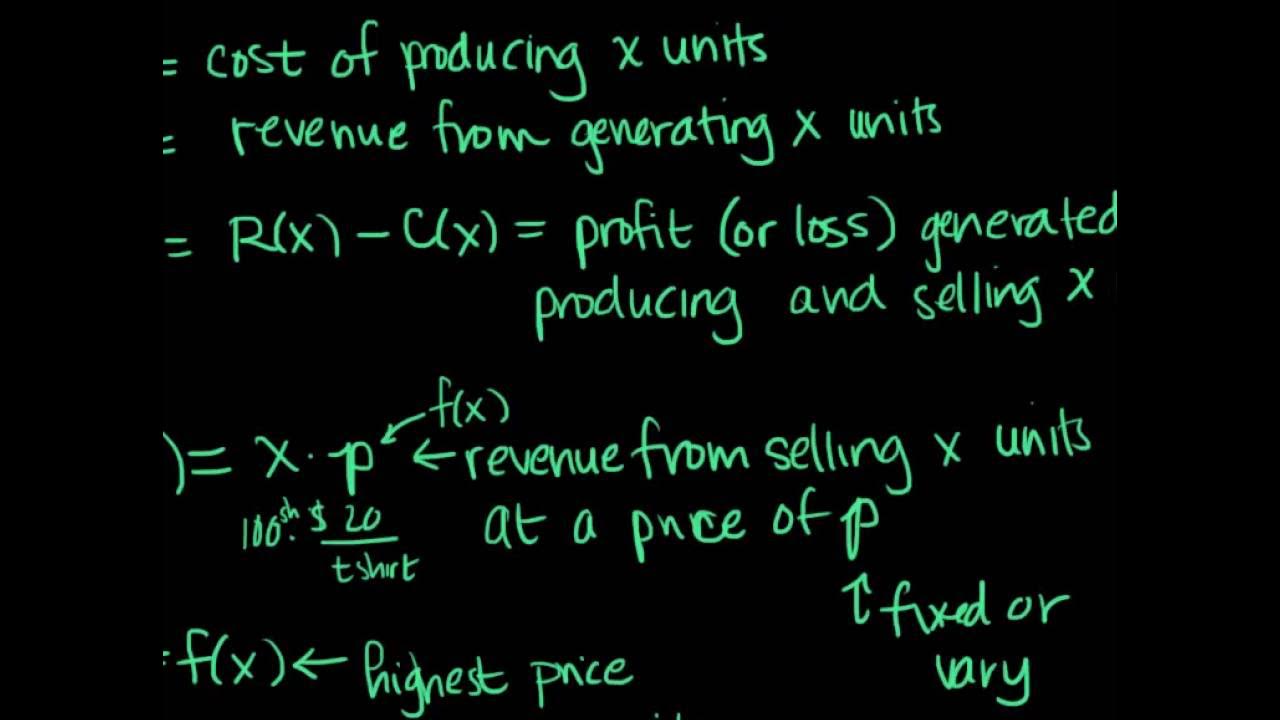 = cost of producing x units
= revenue from generating x units
= R(x) - C(x) = profit (or loss) generated
producing and selling x
f(x)
) = x · p ← revenue from selling x units
100 sh · $20 / tshirt at a price of p
↑ fixed or
vary
= f(x) ← highest price